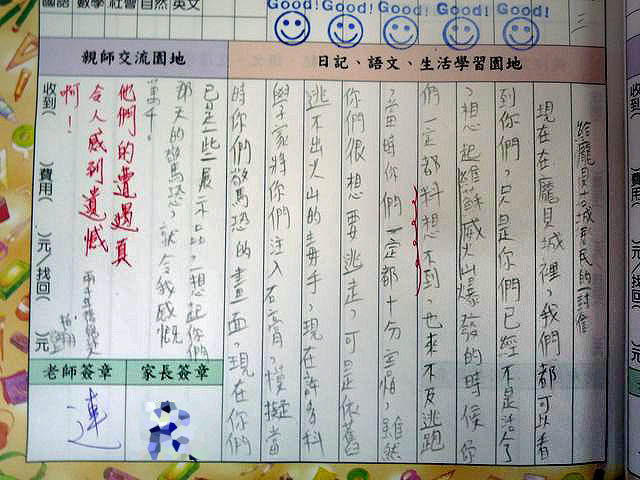 國語 數學 社會 自然 英文
Good! Good! Good! Good! Good!
三
日記、語文、生活學習園地
親師交流園地
給龐貝城居民的封信
現在在龐貝城裡,我們都可以看
到你們,只是你們已經不是活人了
,想起維蘇威火山爆發的時候,你
們一定都料想不到,也來不及逃跑
,當時你們一定都十分害怕,雖然
你們很想要逃走,可是依舊
逃不出火山的毒手,現在許多科
學家將你們注入石膏,模擬當
時你們驚恐的畫面,現在你們
已是一些展示品,想起你們
那天的驚恐,就令我感慨
萬千。
他們的遭遇真
令人感到遺憾
啊!
收到( )費用( )元/找回( )元
老師簽章
家長簽章
連
收到(